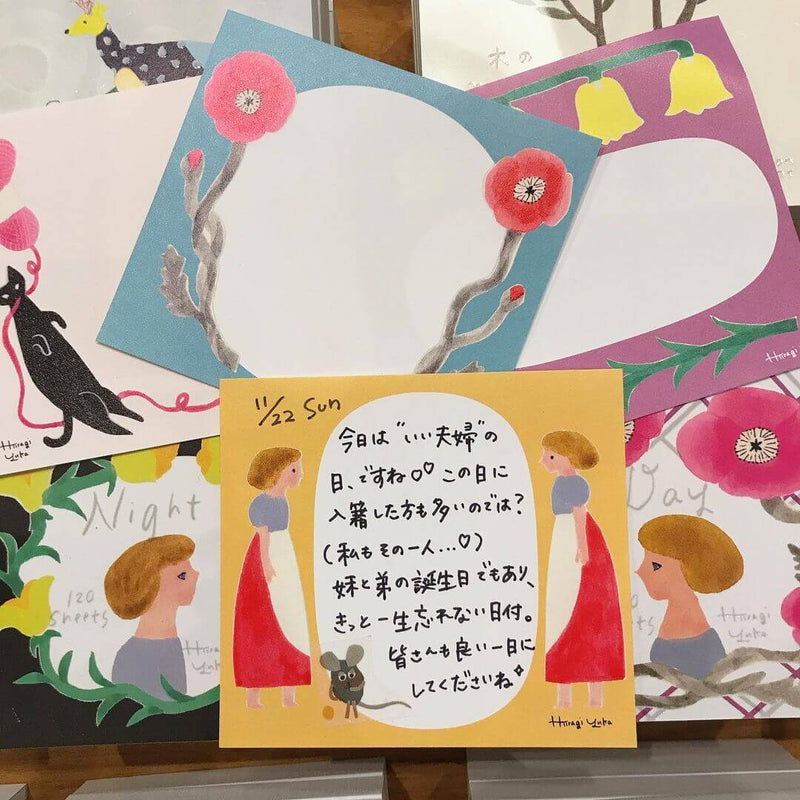 木の
Hiiragi
Yuka
Hiiragi Yuka
11/22 Sun
今日は"いい夫婦"の
日、ですね♡♡ この日に
入籍した方も多いのでは?
(私もその一人…♡)
妹と弟の誕生日でもあり、
きっと一生忘れない日付。
皆さんも良い一日に
してくださいね
Hiiragi Yuka
Night
120
sheets
Hiiragi
Yuka
Day
Hiiragi
Yuka